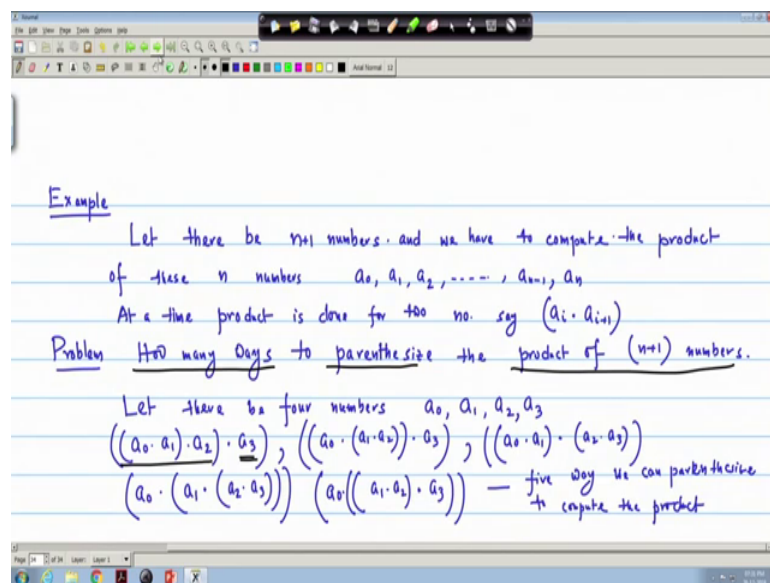 Xournal
File Edit View Page Tools Options Help
Arial Normal 12
Example
Let there be n+1 numbers. and we have to compute the product
of these n numbers a₀, a₁, a₂, ....., aₙ₋₁, aₙ
At a time product is done for two no. say (aᵢ · aᵢ₊₁)
Problem How many ways to parenthesize the product of (n+1) numbers.
Let there be four numbers a₀, a₁, a₂, a₃
((a₀·a₁)·a₂)·a₃), ((a₀·(a₁·a₂))·a₃), ((a₀·a₁)·(a₂·a₃))
(a₀·(a₁·(a₂·a₃))) (a₀·((a₁·a₂)·a₃)) — five way we can parenthesize
to compute the product
Page 34 of 34 Layer: Layer 1